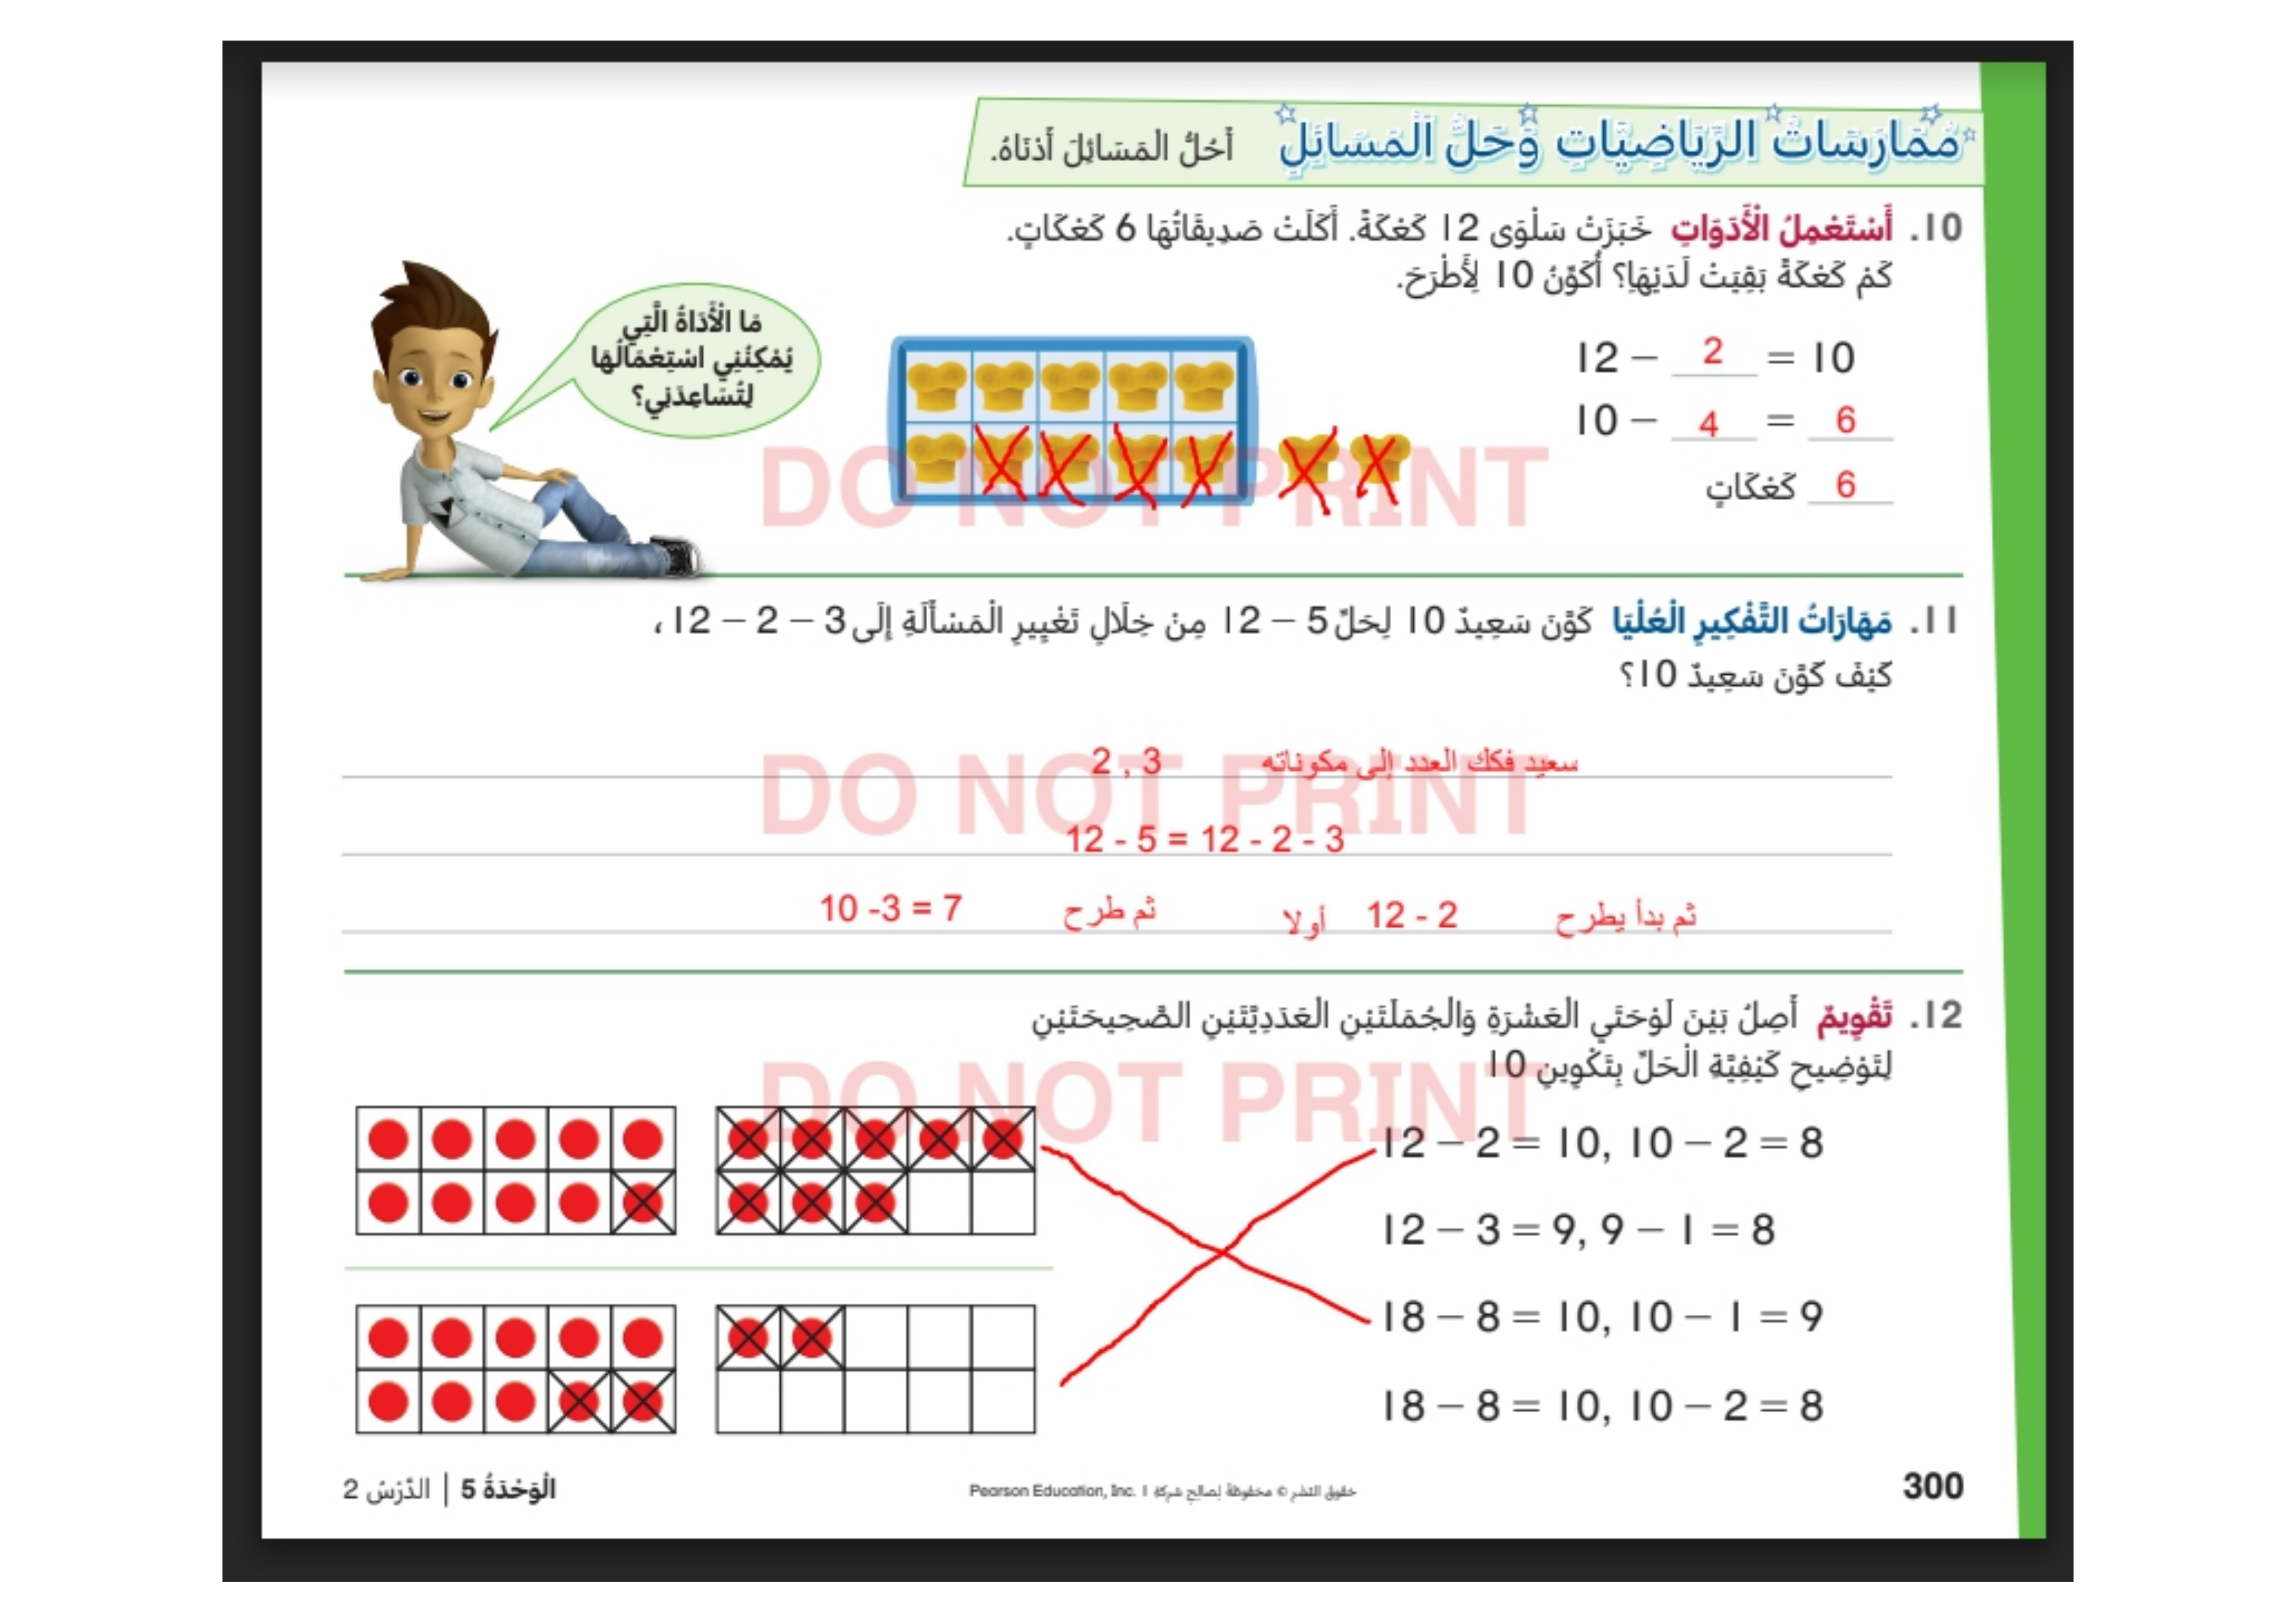 مُمَارَسَاتُ الرِّيَاضِيَّاتِ وَحَلُّ الْمَسَائِلِ أَحُلُّ الْمَسَائِلَ أَدْنَاهُ.
10. أَسْتَعْمِلُ الْأَدَوَاتِ خَبَزَتْ سَلْوَى 12 كَعْكَةً. أَكَلَتْ صَدِيقَاتُهَا 6 كَعْكَاتٍ.
كَمْ كَعْكَةً بَقِيَتْ لَدَيْهَا؟ أُكَوِّنُ 10 لِأَطْرَحَ.
مَا الْأَدَاةُ الَّتِي
يُمْكِنُنِي اسْتِعْمَالُهَا
لِتُسَاعِدَنِي؟
12 − 2 = 10
10 − 4 = 6
6 كَعْكَاتٍ
DO NOT PRINT
11. مَهَارَاتُ التَّفْكِيرِ الْعُلْيَا كَوَّنَ سَعِيدٌ 10 لِحَلِّ 5 − 12 مِنْ خِلَالِ تَغْيِيرِ الْمَسْأَلَةِ إِلَى 3 − 2 − 12،
كَيْفَ كَوَّنَ سَعِيدٌ 10؟
سعيد فكك العدد إلى مكوناته 2 , 3
DO NOT PRINT
12 - 5 = 12 - 2 - 3
ثم بدأ يطرح 12 - 2 أولا ثم طرح 10 -3 = 7
12. تَقْوِيمٌ أَصِلُ بَيْنَ لَوْحَتَيِ الْعَشْرَةِ وَالْجُمَلَتَيْنِ الْعَدَدِيَّتَيْنِ الصَّحِيحَتَيْنِ
لِتَوْضِيحِ كَيْفِيَّةِ الْحَلِّ بِتَكْوِينِ 10
DO NOT PRINT
12 − 2 = 10, 10 − 2 = 8
12 − 3 = 9, 9 − 1 = 8
18 − 8 = 10, 10 − 1 = 9
18 − 8 = 10, 10 − 2 = 8
300
حقوق النشر © محفوظة لصالح شركة Pearson Education, Inc. 1
الْوَحْدَةُ 5 | الدَّرْسُ 2